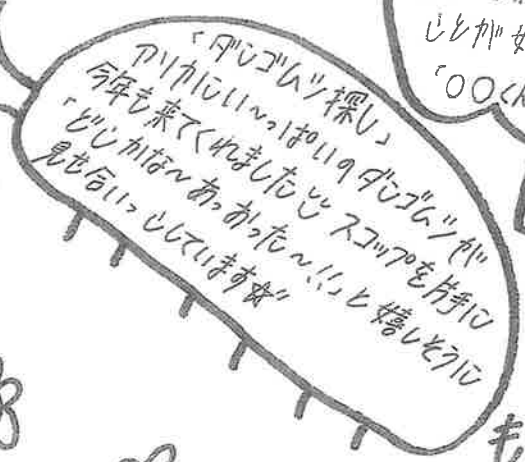 「ダンゴムシ探し」
アリカにい〜っぱいのダンゴムシが
今年も来てくれました スコップを片手に
「どこかな〜あっあった〜!!」と嬉しそうに
見せ合いっこしています☆
「〇〇くん